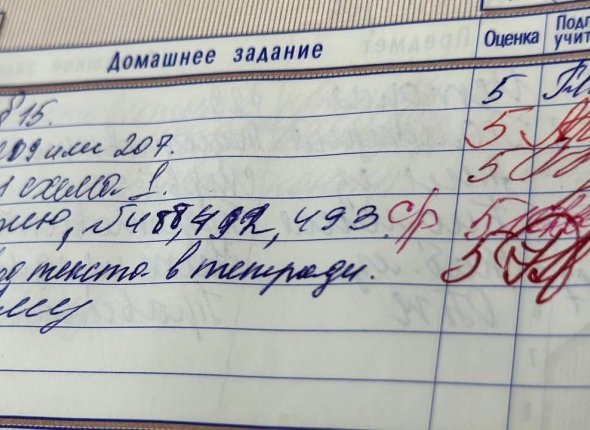 Домашнее задание Оценка Подп учит
§ 15. 5
209 или 207. 5
и схема 1. 5
№ 488, 492, 493 с/р 5
од текста в тетради. 5